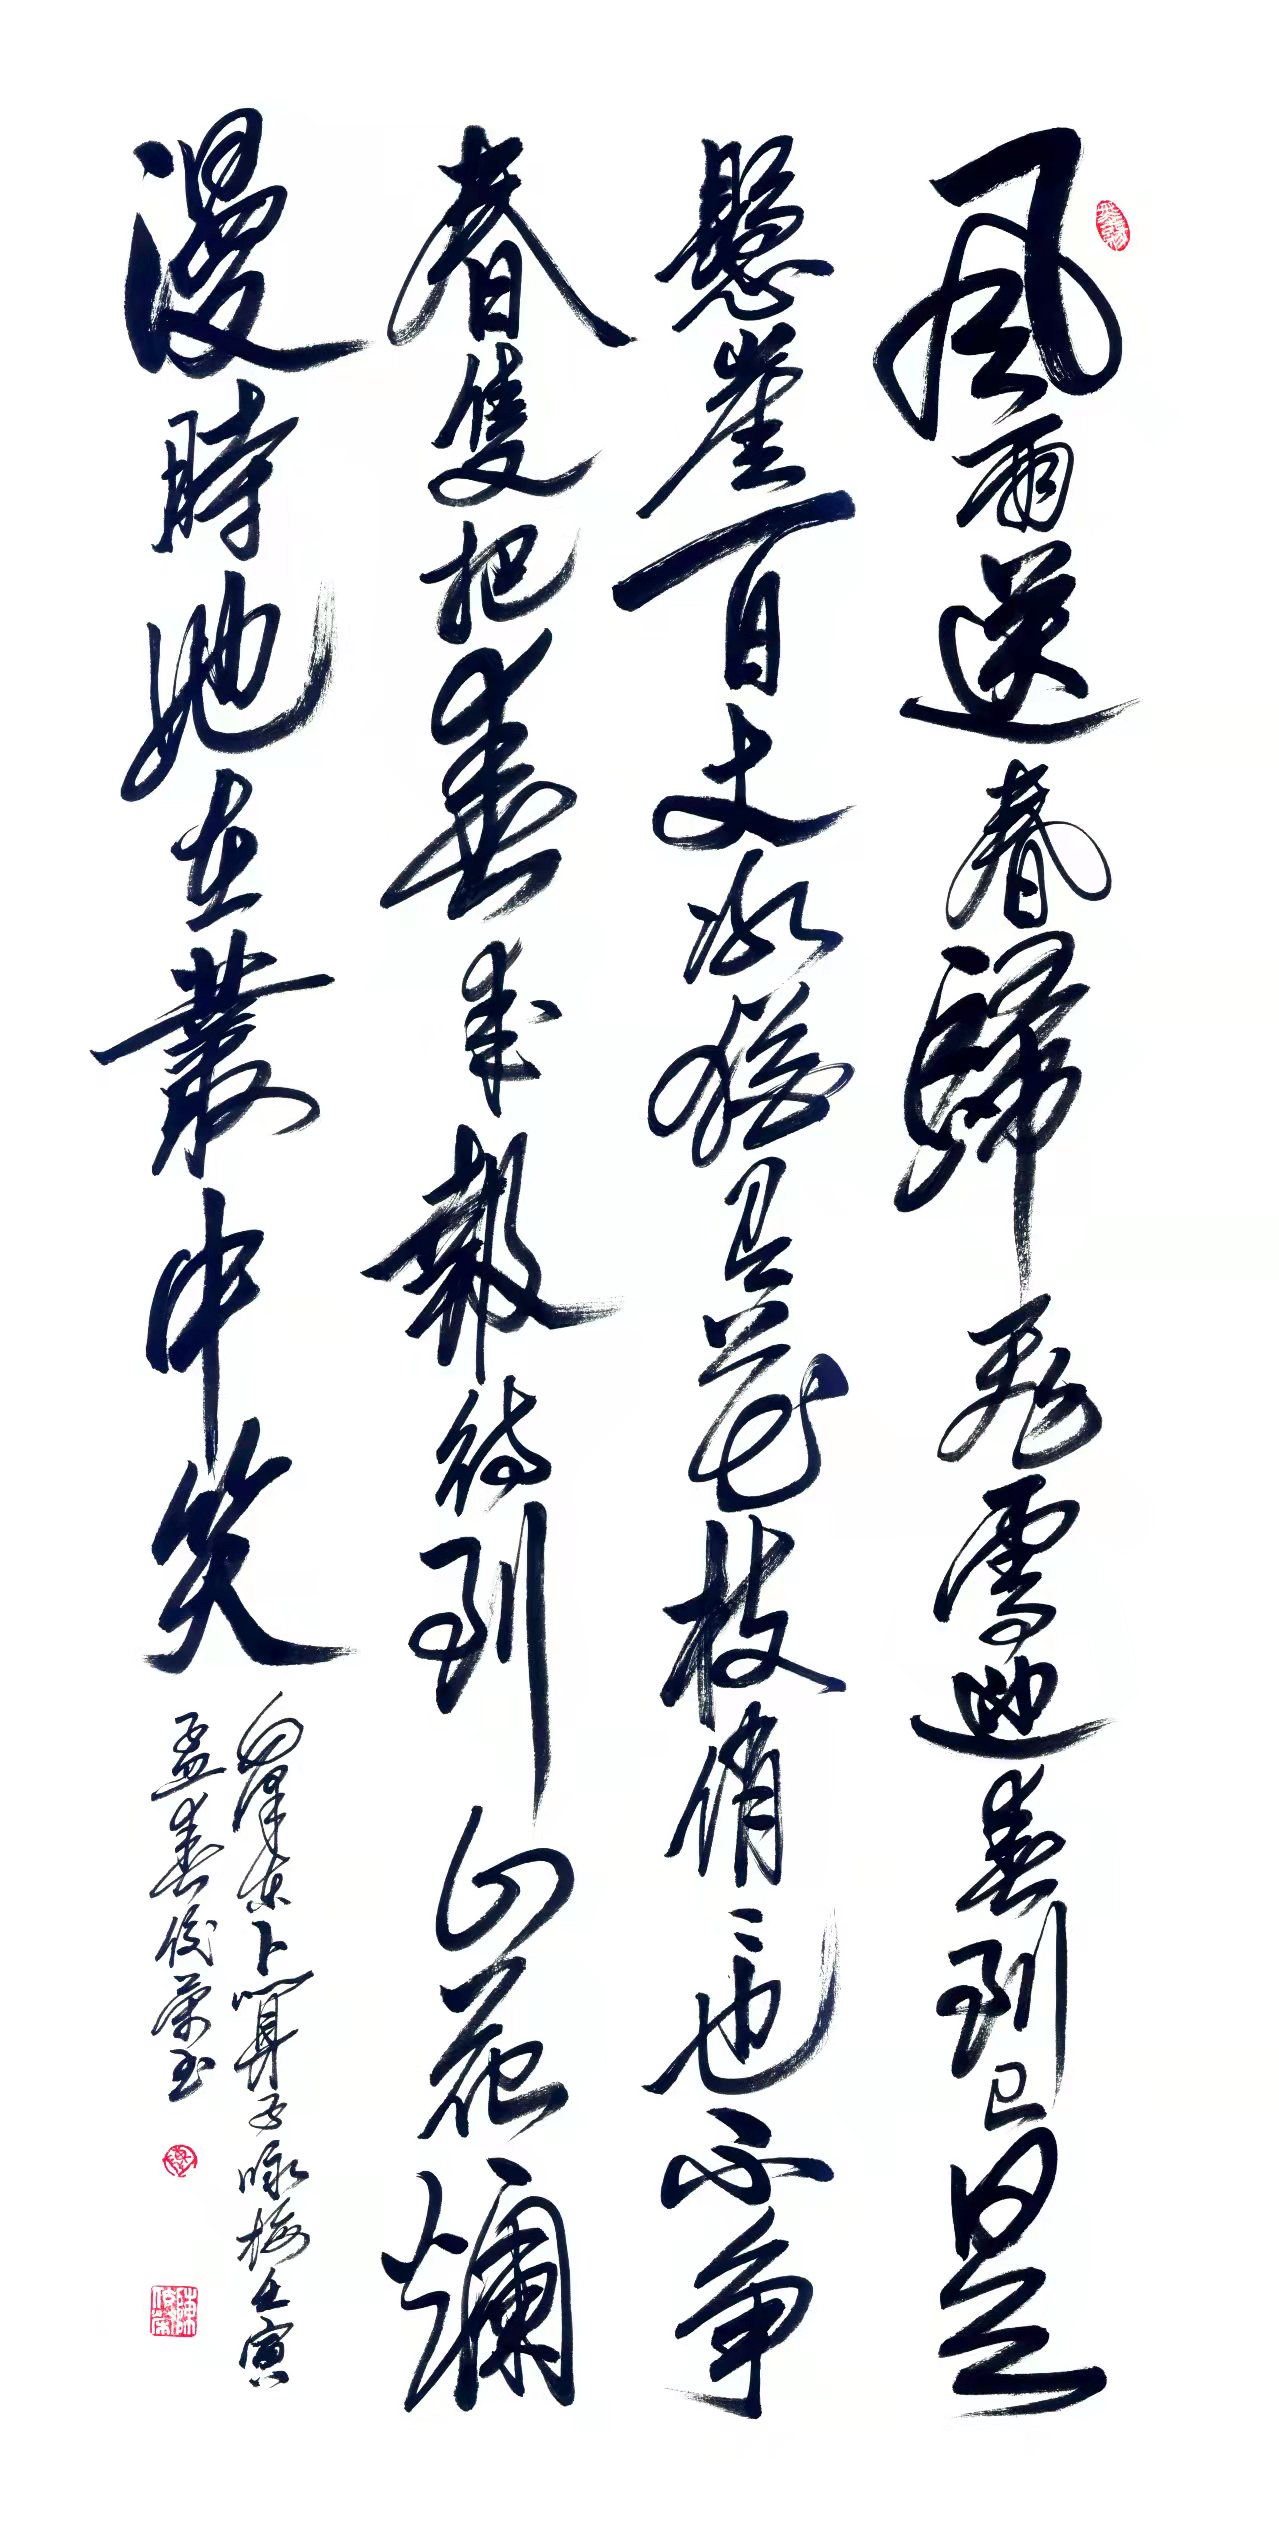 風雨送春歸飛雪迎春到已是
懸崖百丈冰猶有花枝俏〻也不争
春隻把春來報待到山花爛
漫時她在叢中笑
毛澤東卜算子咏梅壬寅
孟春俊榮书